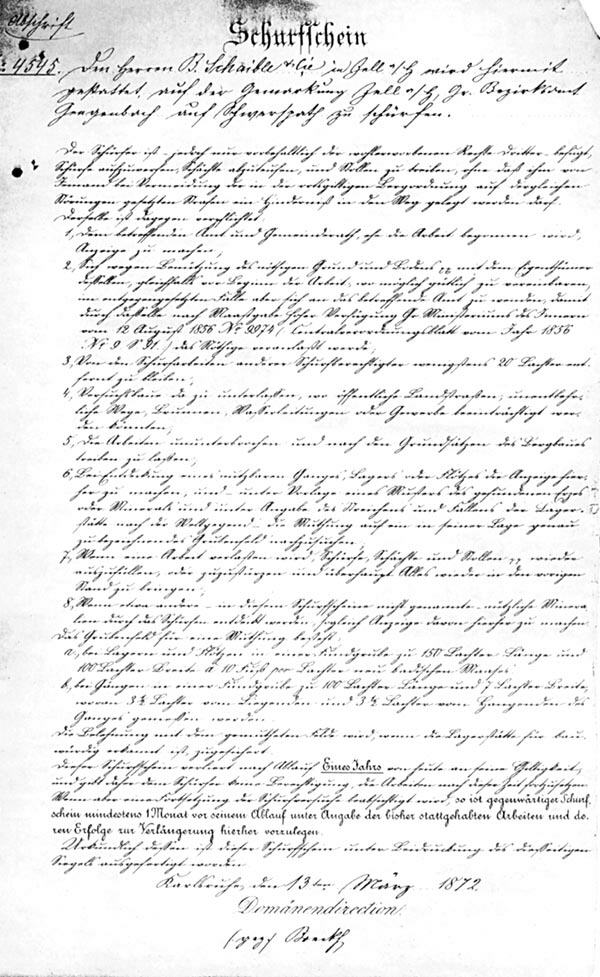 Abschrift
Schurfschein
№ 4545. Den Herren B. Schaible & Cie in Zell a/H wird hiermit
gestattet, auf der Gemarkung Zell a/H, Gr. Bezirksamt
Gengenbach auf Schwerspath zu schürfen.
Der Schürfer ist jedoch nur vorbehaltlich der wohlerworbenen Rechte Dritter befugt,
Schürfe aufzuwerfen, Schächte abzuteufen, und Stollen zu treiben, ohne daß ihm von
Jemand bei Vermeidung der in der Bergordnung auf dergleichen
Störungen gesetzten Strafen ein Hinderniß in den Weg gelegt werden darf.
Derselbe ist dagegen verpflichtet,
1, dem betreffenden Amt und Gemeinderath, ehe die Arbeit begonnen wird,
Anzeige zu machen;
2, Sich wegen Benützung des nöthigen Grund und Bodens mit dem Eigenthümer
desselben, gleichfalls vor Beginn der Arbeit, wo möglich gütlich zu vereinbaren,
im entgegengesetzten Falle aber sich an das betreffende Amt zu wenden, damit
durch dasselbe nach Maasgabe hoher Verfügung Gr. Ministeriums des Innern
vom 12 August 1856 № 9974 (Centralverordnungsblatt vom Jahr 1856
№ 9 S 91.) das Nöthige veranlaßt werde;
3, Von den Schürfarbeiten anderer Schürfberechtigter wenigstens 20 Lachter ent-
fernt zu bleiben;
4, Versuchsbaue da zu unterlassen, wo öffentliche Landstraßen, unentbehr-
liche Wege, Brunnen, Wasserleitungen oder Gewerbe beeinträchtigt wer-
den könnten;
5, Die Arbeiten ununterbrochen und nach den Grundsätzen des Bergbaues
treiben zu lassen;
6, Bei Entdeckung eines nutzbaren Ganges, Lagers oder Flötzes die Anzeige hier-
her zu machen, und unter Vorlage eines Musters des gefundenen Erzes
oder Minerals und unter Angabe des Streichens und Fallens der Lager-
stätte nach der Weltgegend die Muthung auf ein in seiner Lage genau
zu bezeichnendes Grubenfeld nachzusuchen;
7, Wenn eine Arbeit verlassen wird, Schürfe, Schächte und Stollen wieder
auszufüllen, oder zuzustürzen und überhaupt Alles wieder in den vorigen
Stand zu bringen;
8, Wenn etwa andere in diesem Schurfscheine nicht genannte nützliche Minera-
lien durch das Schürfen entdeckt werden, sogleich Anzeige davon hierher zu machen.
Das Grubenfeld für eine Muthung besteht:
a, bei Lagern und Flötzen in einer Fundgrube zu 150 Lachter Länge und
100 Lachter Breite à 10 Fuß pro Lachter neu badischen Maases
b, bei Gängen in einer Fundgrube zu 100 Lachter Länge und 7 Lachter Breite,
wovon 3½ Lachter vom Liegenden und 3½ Lachter vom Hangenden des
Ganges gemessen werden.
Die Belehnung mit dem gemutheten Felde wird, wenn die Lagerstätte für bau-
würdig erkannt ist, zugesichert.
Dieser Schurfschein verliert nach Ablauf Eines Jahrs von heute an seine Gültigkeit,
und gibt daher dem Schürfer keine Berechtigung, die Arbeiten nach dieser Zeit fortzusetzen.
Wenn aber eine Fortsetzung der Schürfversuche beabsichtigt wird, so ist gegenwärtiger Schurf-
schein mindestens 1 Monat vor seinem Ablauf unter Angabe der bisher stattgehabten Arbeiten und de-
ren Erfolge zur Verlängerung hierher vorzulegen.
Urkundlich dessen ist dieser Schurfschein unter Beidruckung des diesseitigen
Siegels ausgefertigt worden
Karlsruhe, den 13ten März 1872.
Domänendirection.
(gez)